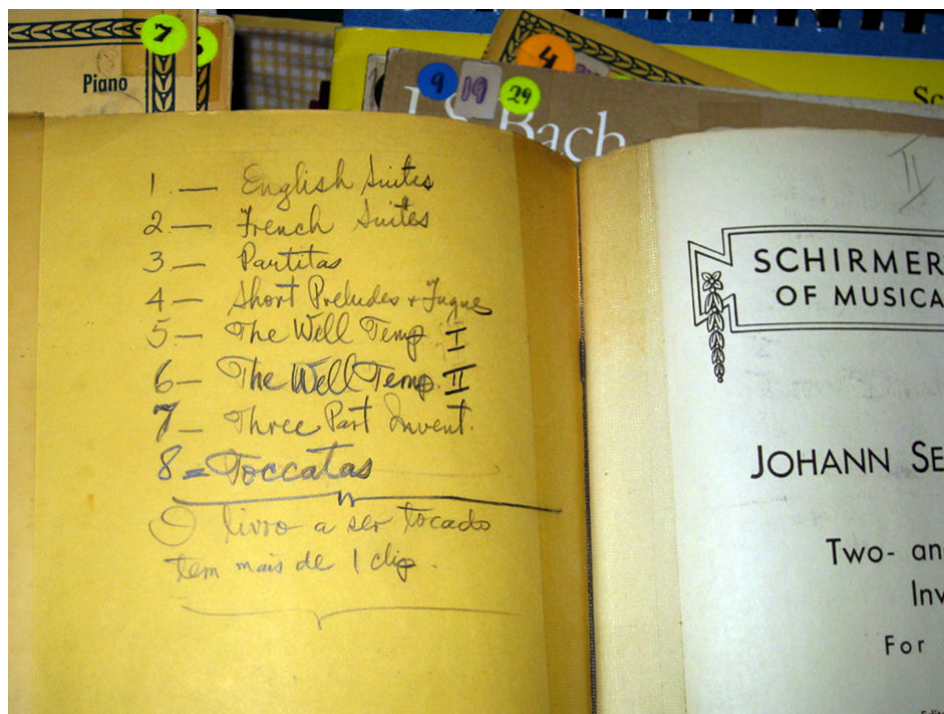 7
Piano
4
9 19 29
J.S. Bach
Sc
1. — English Suites
2. — French Suites
3 — Partitas
4 — Short Preludes + Fugue
5 — The Well Temp I
6 — The Well Temp. II
7 — Three Part Invent.
8 = Toccatas
O livro a ser tocado
tem mais de 1 clip.
II
SCHIRMER
OF MUSICA
JOHANN SE
Two- an
Inv
For